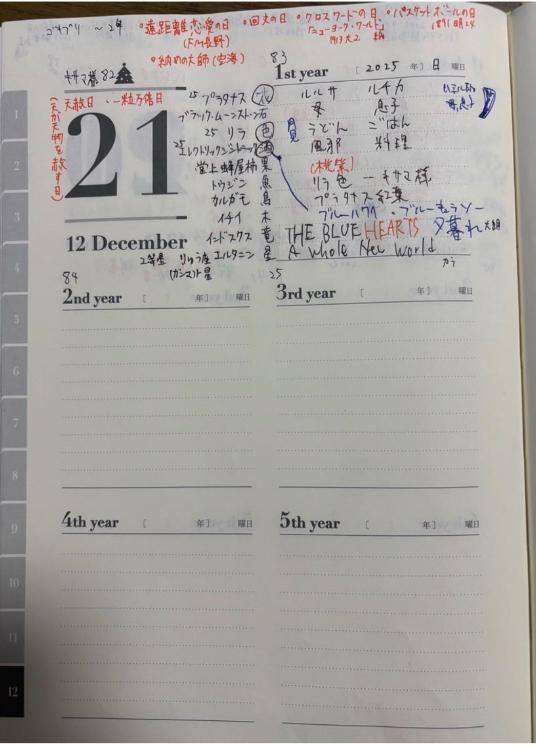 〜29 °遠距離恋愛の日 °回文の日 °クロスワードの日 °バスケットボールの日
(FM長野) (ニューヨーク・ワールド 1913 (1891 明24
°納めの大師(空海)
キサマ様82 83
1st year 2025年 日 曜日
天赦日、一粒万倍日
(天が万物を赦す日)
21
12 December
25 プラタナス 花 ルルサ ルチカ
ブラック・ムーンストーン 石 母 息子
25 リラ 色 うどん ごはん
25 エレクトリック 酒 風邪 料理
堂上蜂屋柿 果
トウジン 魚 リラ色 ーキサマ様
カルガモ 鳥 プラタナス紅葉
イチイ 木 ブルーハワイ・ブルーキュラソー
インドスクス 竜 THE BLUE HEARTS 夕暮れ
2等星 りゅう座 エルタニン 星 A Whole New World
84 25
2nd year [ 年] 曜日
3rd year [ 年] 曜日
4th year [ 年] 曜日
5th year [ 年] 曜日
1
2
3
4
5
6
7
8
9
10
11
12